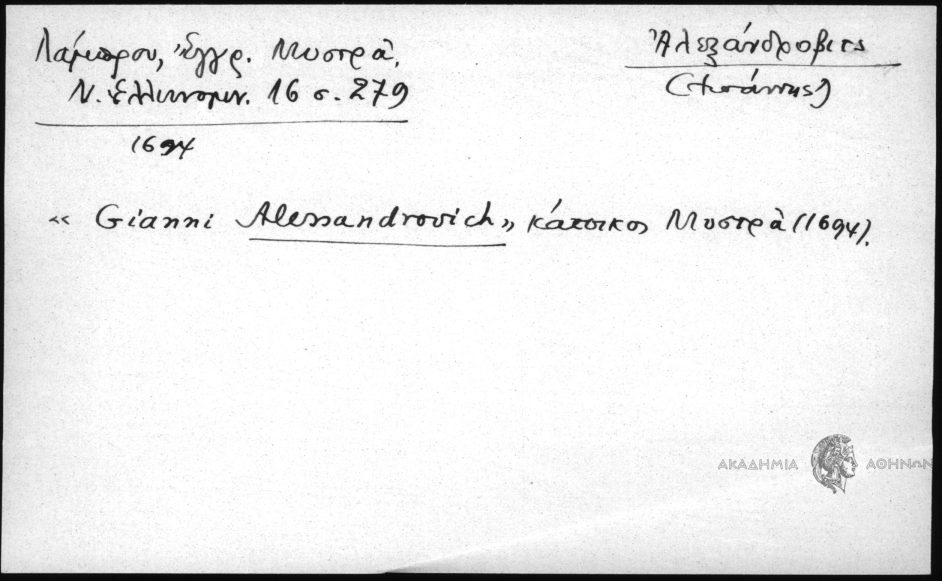 Λάμπρου, Ἔγγρ. Μυστρᾶ,
Ν. Ἑλληνομν. 16 σ. 279
1694
Ἀλεξάνδροβιτς
(Ἰωάννης)
« Gianni Alessandrovich», κάτοικος Μυστρᾶ (1694).
ΑΚΑΔΗΜΙΑ ΑΘΗΝΩΝ